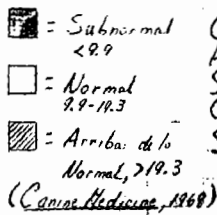 = Subnormal
<9.9
= Normal
9.9-19.3
= Arriba de lo
Normal, >19.3
(Canine Medicine, 1968)